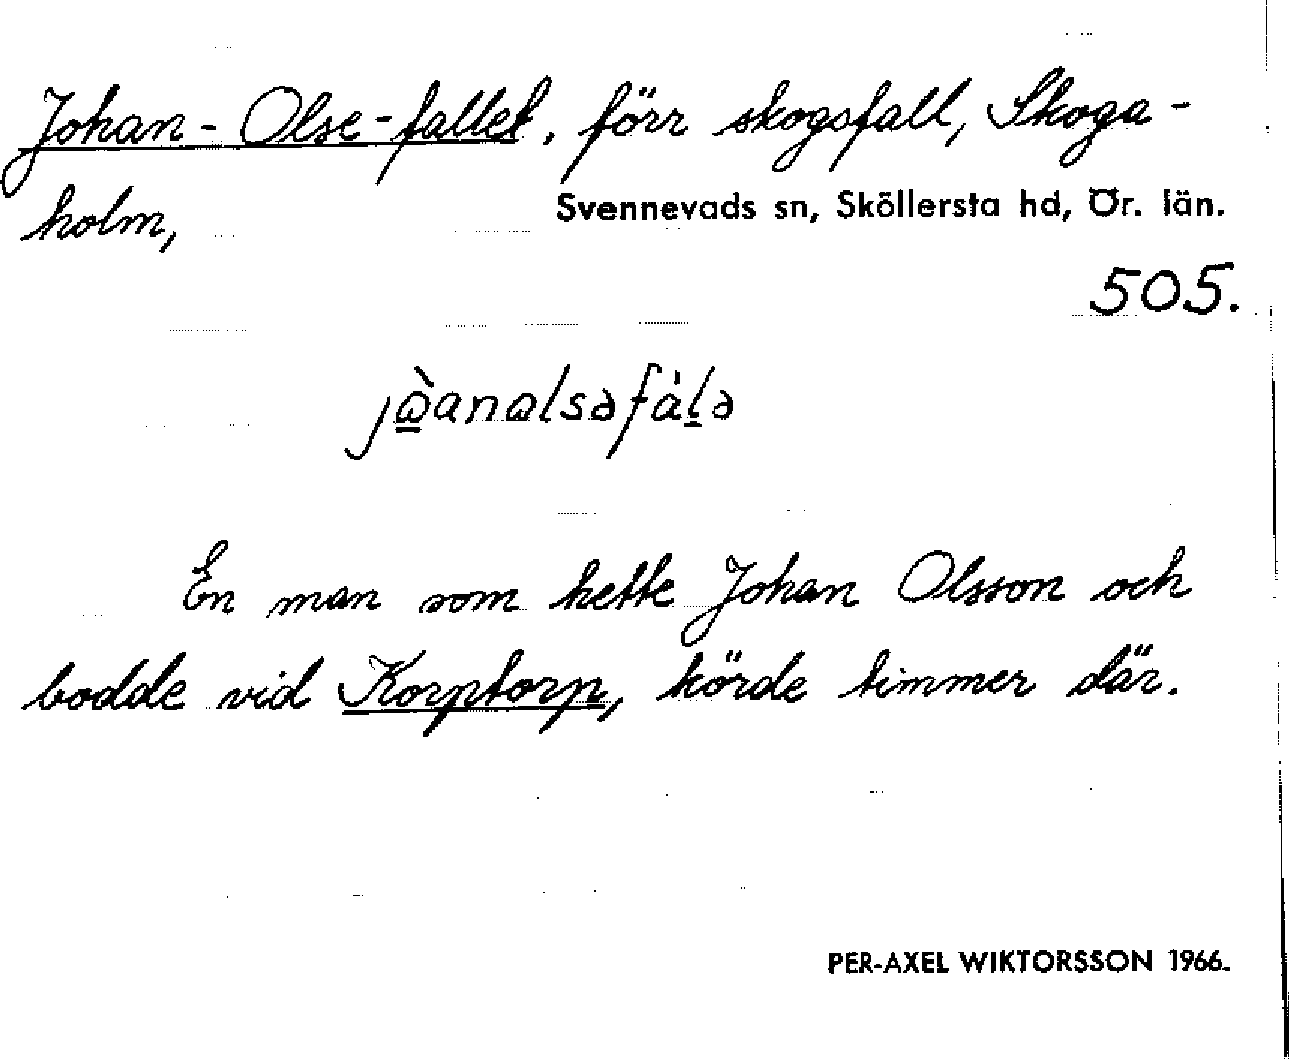 Johan-Olse-fallet, förr skogsfall, Skoga-
holm,
Svennevads sn, Sköllersta hd, Ör. län.
505.
En man som hette Johan Olsson och
bodde vid Korptorp, körde timmer där.
PER-AXEL WIKTORSSON 1966.